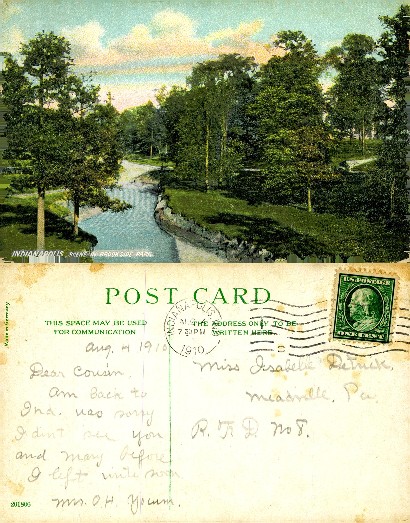 INDIANAPOLIS, SCENE IN BROOKSIDE PARK.
POST CARD
THIS SPACE MAY BE USED
FOR COMMUNICATION
THE ADDRESS ONLY TO BE
WRITTEN HERE.
INDIANAPOLIS
AUG
7 30 PM
1910
Aug. 4 1910
Dear Cousin
Am back to
Ind. was sorry
I didn't see you
and Mary before
I left write soon
Mrs. O.H.
Miss Isabelle
Meadville, Pa.
R. F. D. No 8.
201805